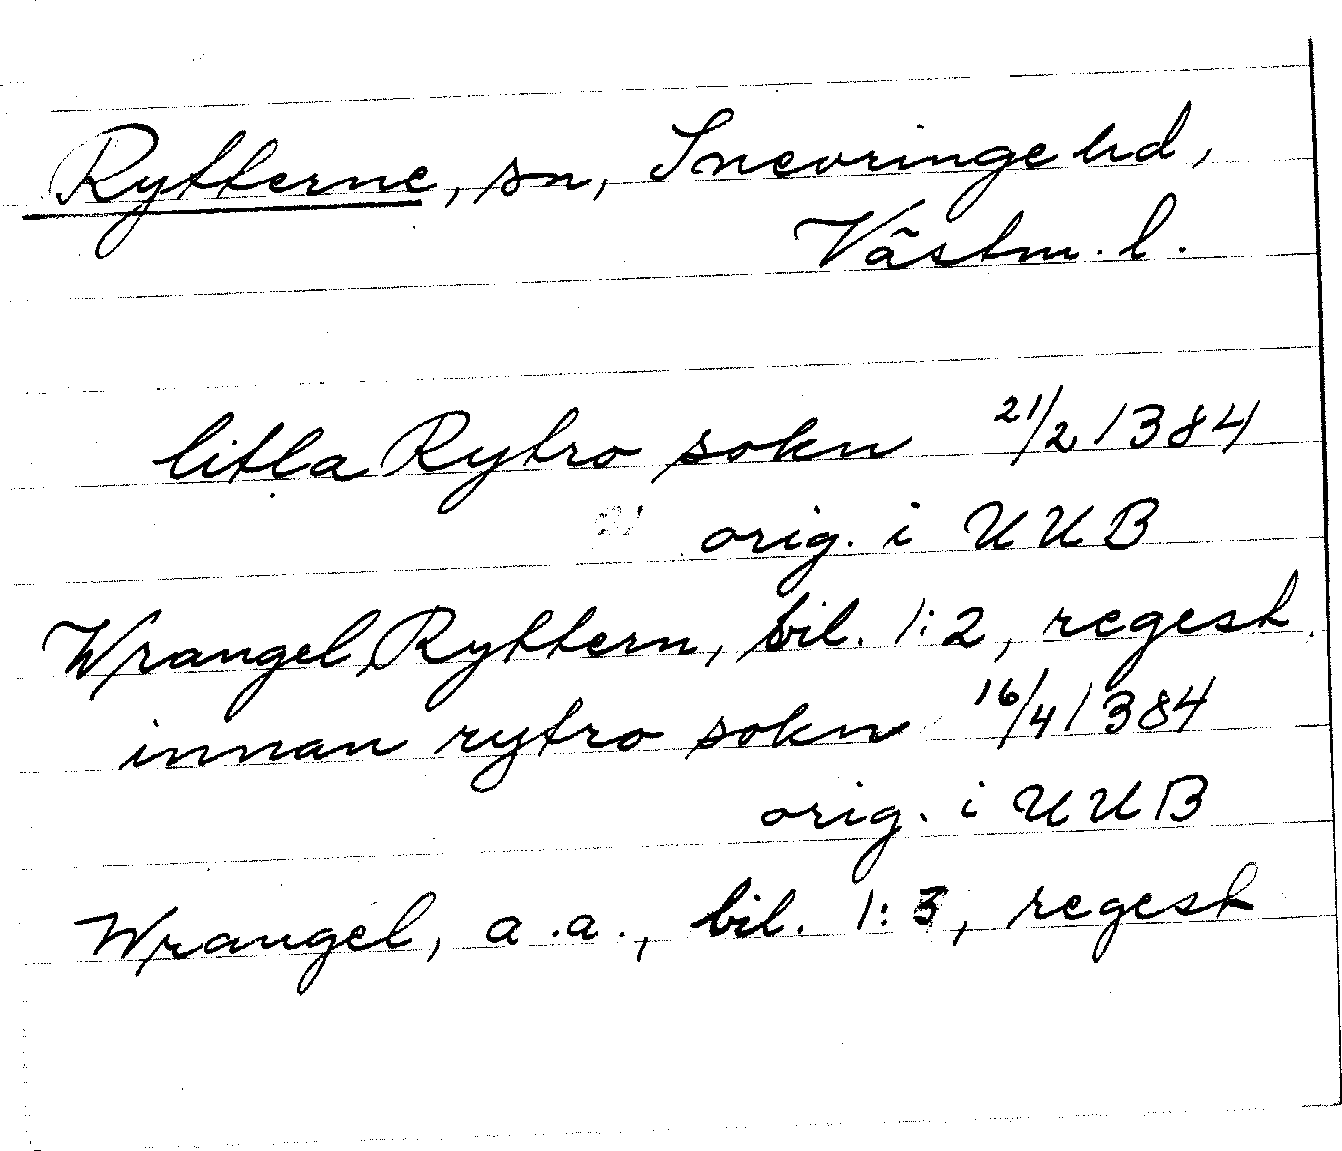 Rytterne, sn, Snevringe hd,
Västm. l.
litla Rytro sokn 21/2 1384
orig. i UUB
Wrangel, Ryttern, bil. 1:2, regest.
innan rytro sokn 16/4 1384
orig. i UUB
Wrangel, a.a., bil. 1:3, regest